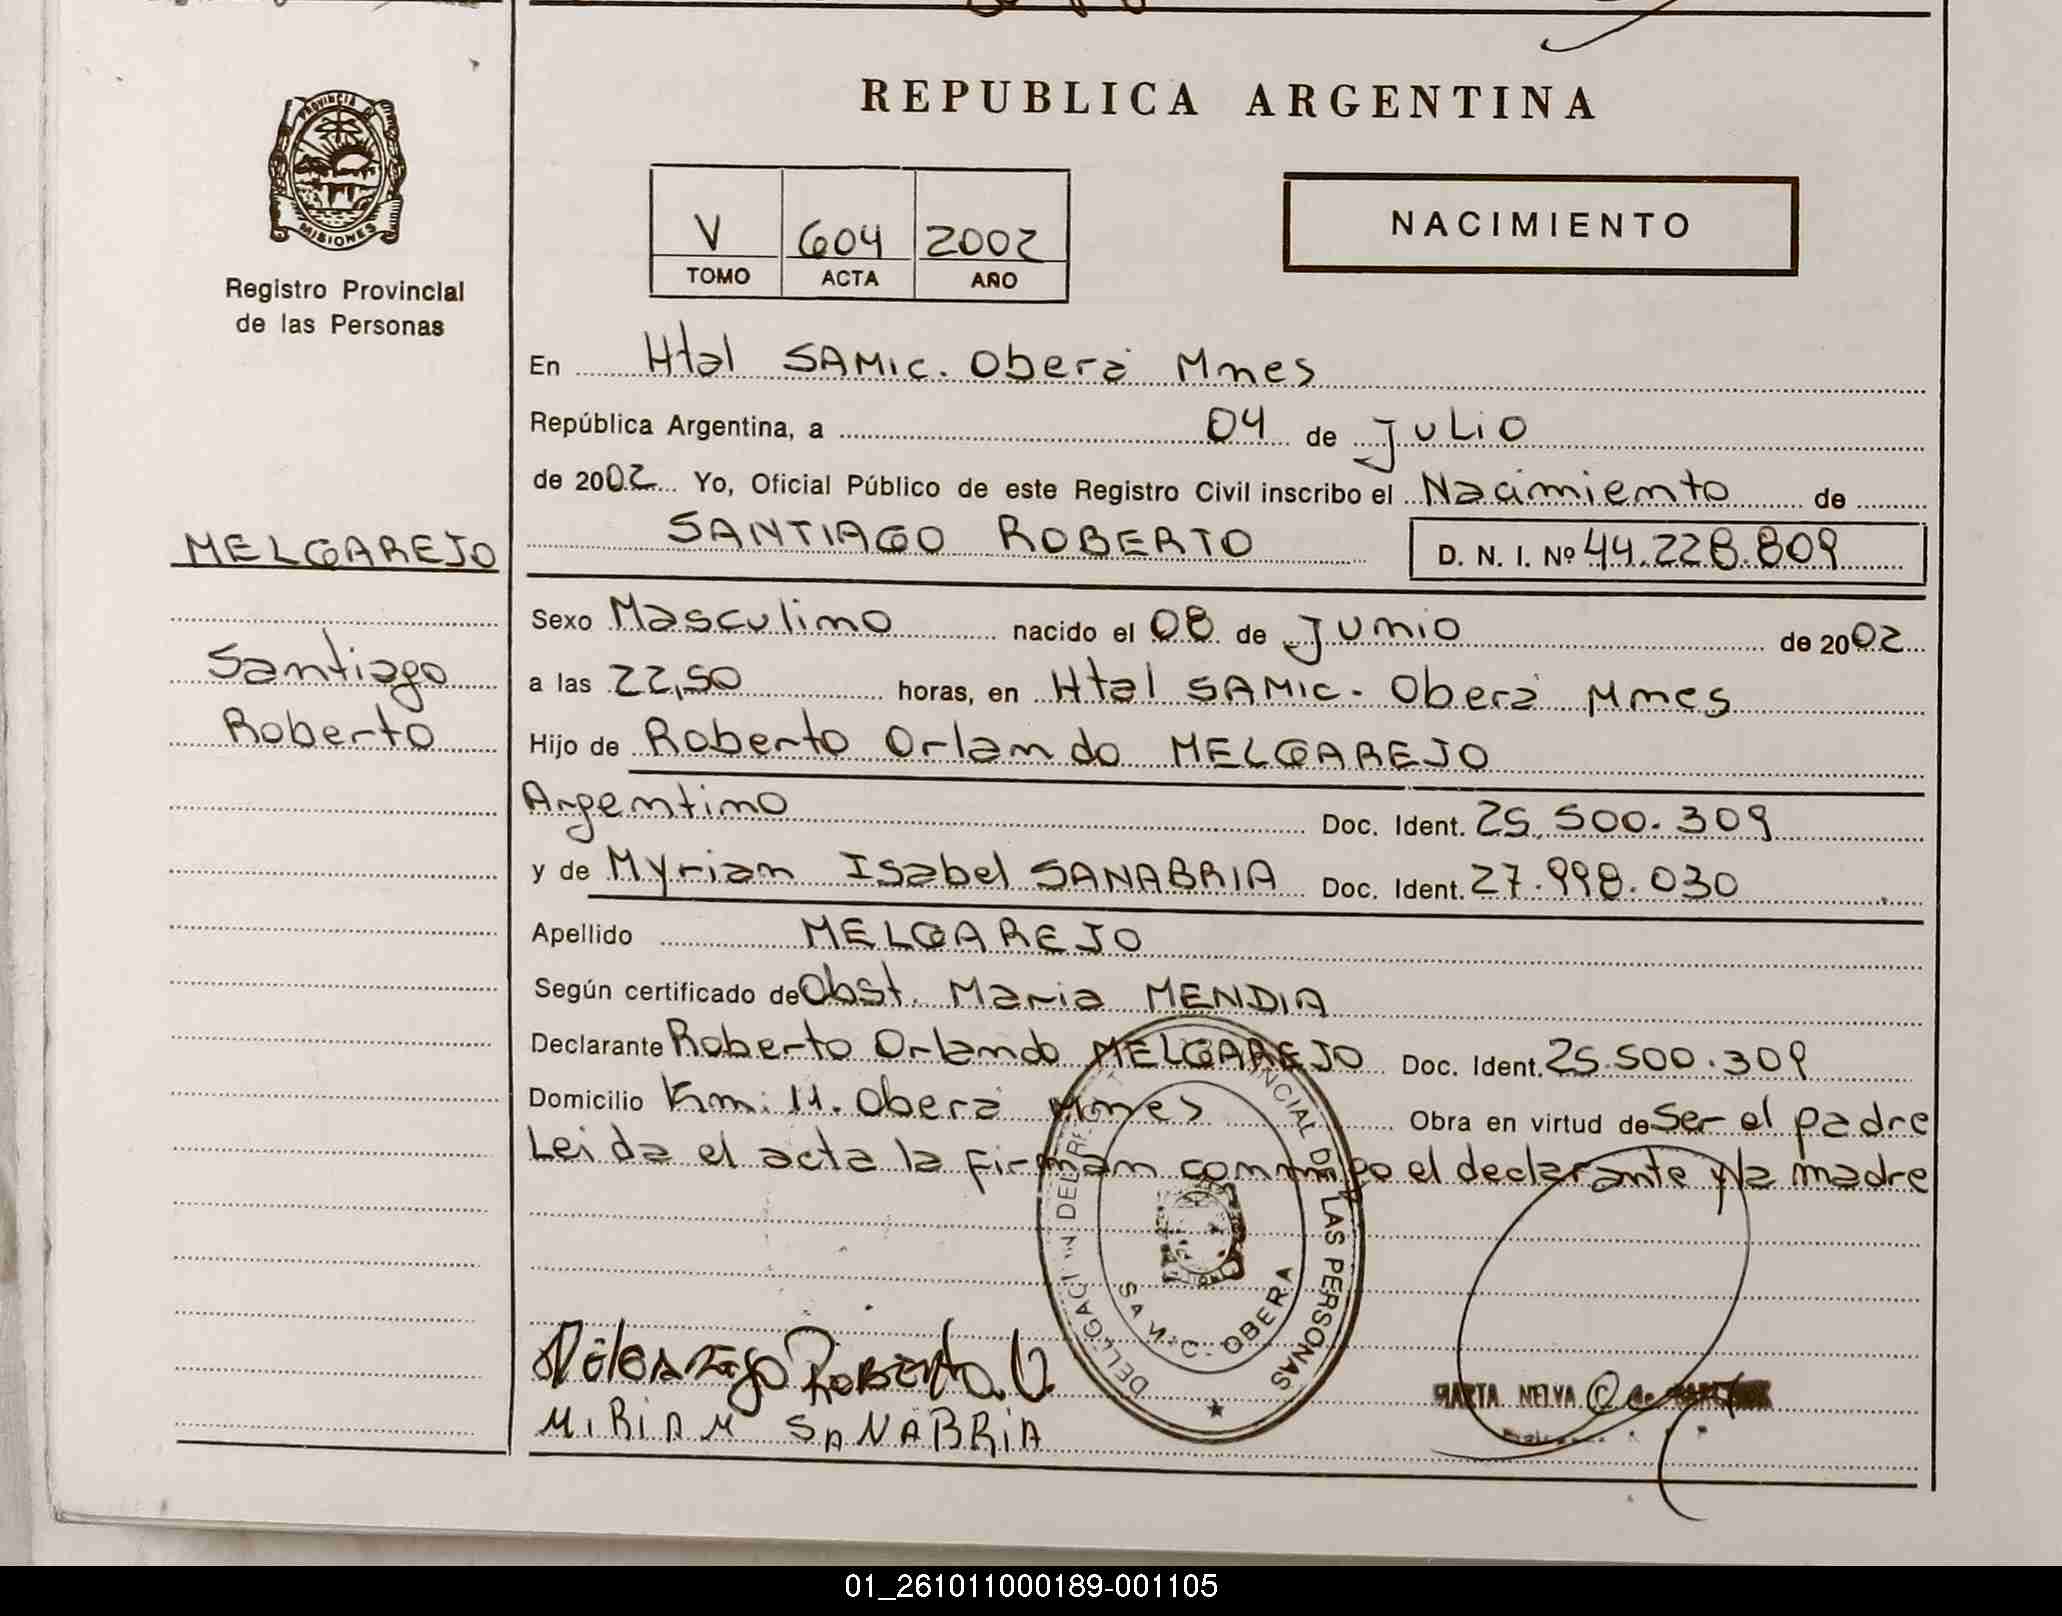 REPUBLICA ARGENTINA
PROVINCIA DE
MISIONES
Registro Provincial
de las Personas
V 604 2002
TOMO ACTA AÑO
NACIMIENTO
En Htal SAMIC. Oberá Mnes
República Argentina, a 04 de Julio
de 2002 Yo, Oficial Público de este Registro Civil inscribo el Nacimiento de
SANTIAGO ROBERTO D. N. I. Nº 44.228.809
MELGAREJO
Santiago
Roberto
Sexo Masculino nacido el 08 de Junio de 2002
a las 22,50 horas, en Htal SAMIC. Oberá Mnes
Hijo de Roberto Orlando MELGAREJO
Argentino Doc. Ident. 25.500.309
y de Myrian Isabel SANABRIA Doc. Ident. 27.998.030
Apellido MELGAREJO
Según certificado de Obst. Maria MENDIA
Declarante Roberto Orlando MELGAREJO Doc. Ident. 25.500.309
Domicilio Km: 11. Oberá Mnes Obra en virtud de Ser el padre
Leida el acta la firman conmigo el declarante y la madre
DELEGACION DEL REGISTRO PROVINCIAL DE LAS PERSONAS
S.A.M.I.C. - OBERA
Melgarejo Roberto. O.
MIRIAM SANABRIA
MARTA NELVA C. de
01_261011000189-001105